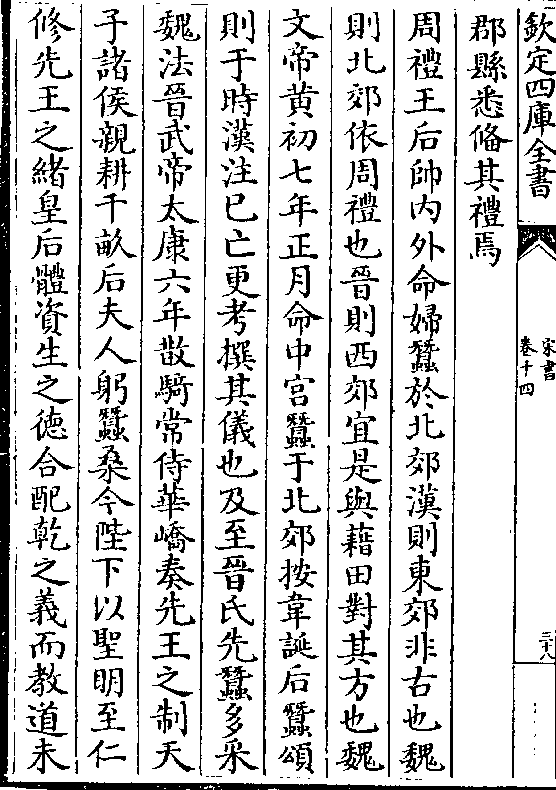 欽定四庫全書
宋書
卷十四
三十八
郡縣悉備其禮焉
周禮王后帥内外命婦蠶於北郊漢則東郊非古也魏
則北郊依周禮也晉則西郊宜是與藉田對其方也魏
文帝黄初七年正月命中宮蠶于北郊按韋誕后蠶頌
則于時漢注已亡更考撰其儀也及至晉氏先蠶多采
魏法晉武帝太康六年散騎常侍華嶠奏先王之制天
子諸侯親耕千畝后夫人躬蠶桑今陛下以聖明至仁
修先王之緒皇后體資生之德合配乾之義而教道未